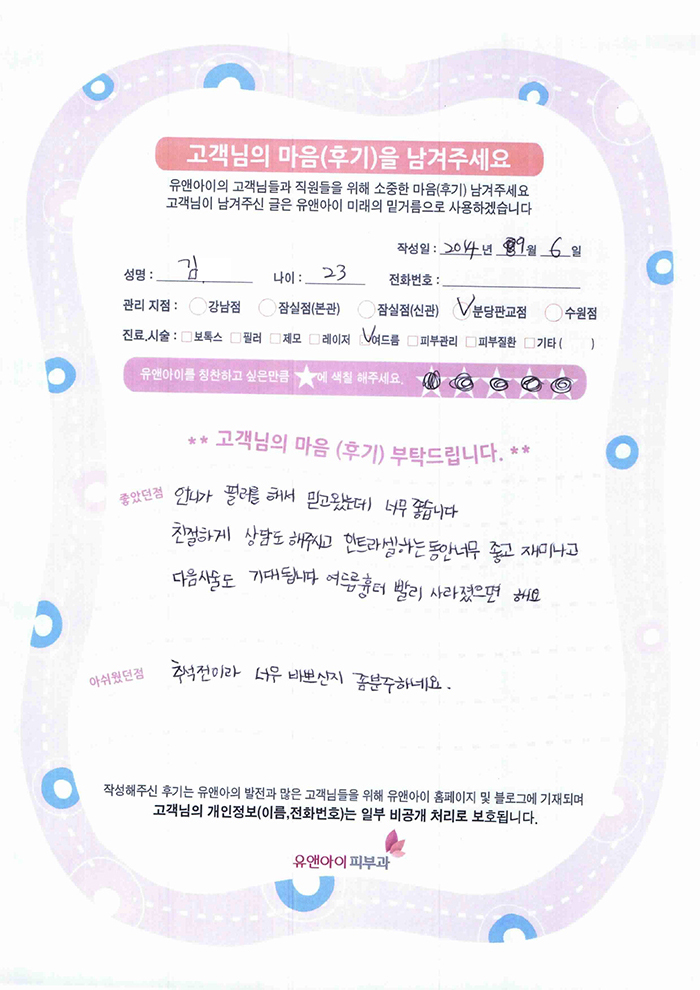 고객님의 마음(후기)을 남겨주세요
유앤아이의 고객님들과 직원들을 위해 소중한 마음(후기) 남겨주세요
고객님이 남겨주신 글은 유앤아이 미래의 밑거름으로 사용하겠습니다
작성일 : 2014 년 9 월 6 일
성명 : 김 나이 : 23 전화번호 :
관리 지점 : 강남점 잠실점(본관) 잠실점(신관) V 분당판교점 수원점
진료,시술 : 보톡스 필러 제모 레이저 V 여드름 피부관리 피부질환 기타 ( )
유앤아이를 칭찬하고 싶은만큼 ★에 색칠 해주세요.
** 고객님의 마음 (후기) 부탁드립니다. **
좋았던점 언니가 필러를 해서 믿고왔는데 너무 좋습니다
친절하게 상담도 해주시고 인트라셀하는동안너무 좋고 재미나고
다음시술도 기대됩니다 여드름흉터 빨리 사라졌으면 해요
아쉬웠던점 추석전이라 너무 바쁘신지 좀분주하네요.
작성해주신 후기는 유앤아의 발전과 많은 고객님들을 위해 유앤아이 홈페이지 및 블로그에 기재되며
고객님의 개인정보(이름,전화번호)는 일부 비공개 처리로 보호됩니다.
유앤아이피부과